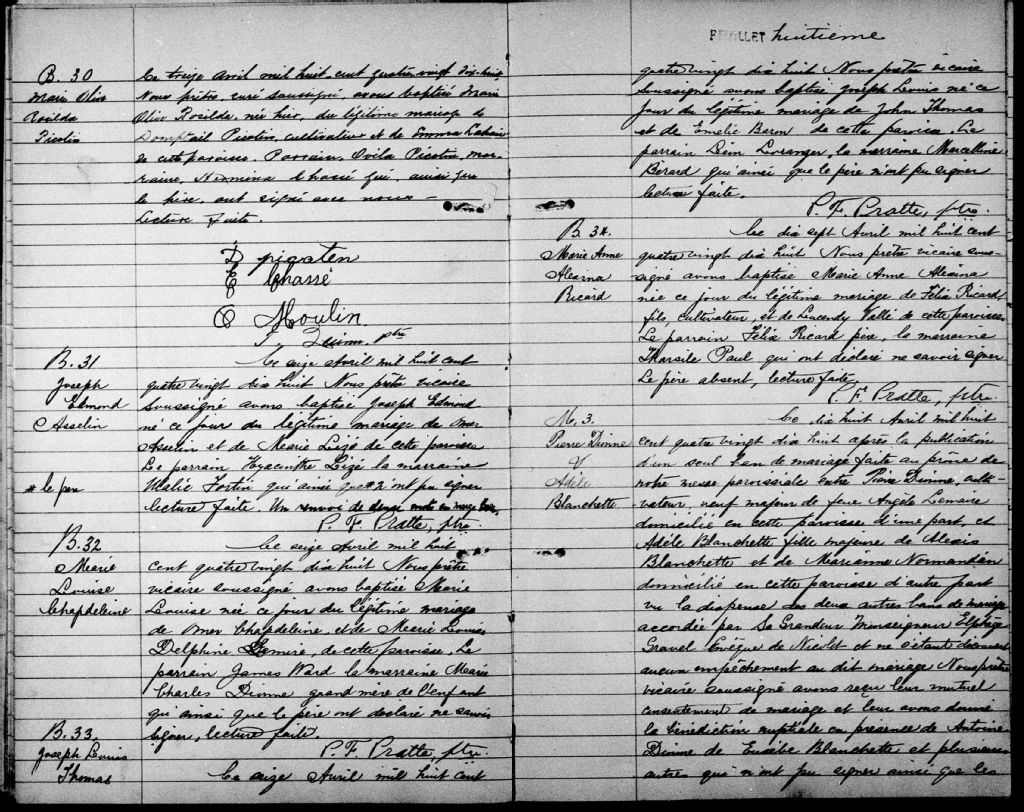 B. 30
Marie Oliv
Rosilda
Picotin
Ce treize avril mil huit-cent quatre-vingt dix-huit
Nous prêtre, curé soussigné, avons baptisé Marie
Oliv Rosilda, née hier, du légitime mariage de
Picotin, cultivateur et de Emma
de cette paroisse. Parrain, Ovila Picotin, mar-
raine, Chassé qui, ainsi que
le père, ont signé avec nous —
Lecture faite.
D picoten
E Chassé
O Moulin
J Ptre
B. 31
Joseph
Edmond
Asselin
# le père
Ce seize Avril mil huit cent
quatre vingt dix huit Nous prêtre vicaire
soussigné avons baptisé Joseph Edmond
né ce jour du légitime mariage de Omer
Asselin et de Marie Lizé de cette paroisse
Le parrain Hyacinthe Lizé la marraine
Malie Fortin qui ainsi que # n'ont pu signer
lecture faite. Un renvoi de deux mots en marge bon.
P. F. Pratte, ptre.
B. 32
Marie
Louise
Chapdeleine
Ce seize Avril mil huit
cent quatre vingt dix huit Nous prêtre
vicaire soussigné avons baptisé Marie
Louise née ce jour du légitime mariage
de Omer Chapdeleine, et de Marie Louise
Delphine Lemire, de cette paroisse. Le
parrain James Ward la marraine Marie
Charles Dionne grand mère de l'enfant
qui ainsi que le père ont déclaré ne savoir
signer, lecture faite.
P. F. Pratte, ptre.
B. 33.
Joseph Louis
Thomas
Ce seize Avril mil huit cent
FEUILLET huitième
quatre vingt dix huit Nous prêtre vicaire
soussigné avons baptisé Joseph Louis né ce
jour du légitime mariage de John Thomas
et de Emélie Baron de cette paroisse. Le
parrain Léon Loranger, la marraine Marcelline
Bérard qui ainsi que le père n'ont pu signer
lecture faite.
P. F. Pratte, ptre.
B. 34.
Marie Anne
Alexina
Ricard
Ce dix sept Avril mil huit cent
quatre vingt dix huit Nous prêtre vicaire sous-
signé avons baptisé Marie Anne Alexina
née ce jour du légitime mariage de Félix Ricard
fils, cultivateur, et de Vallé de cette paroisse
Le parrain Félix Ricard père, la marraine
Tharsile Paul qui ont déclaré ne savoir signer
Le père absent, lecture faite
P. F. Pratte, ptre.
M. 3.
Pierre Dionne
&
Adèle
Blanchette
Ce dix huit Avril mil huit
cent quatre vingt dix huit après la publication
d'un seul ban de mariage faite au prône de
notre messe paroissiale entre Pierre Dionne, culti-
vateur, veuf majeur de feue Angèle Lemaire
domicilié en cette paroisse d'une part, et
Adèle Blanchette fille majeure de Alexis
Blanchette et de Marianne Normandin
domicilié en cette paroisse d'autre part
vu la dispense des deux autres bans de mariage
accordée par Sa Grandeur Monseigneur Elphège
Gravel Evêque de Nicolet et ne s'étant découvert
aucun empêchement au dit mariage Nous prêtre
vicaire soussigné avons reçu leur mutuel
consentement de mariage et leur avons donné
la bénédiction nuptiale en présence de Antoine
Dionne de Eusèbe Blanchette et plusieurs
autres qui n'ont pu signer ainsi que les